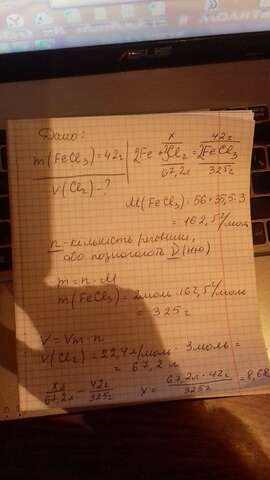 Дано:
m(FeCl₃)=42г
V(Cl₂)-?
x 42г
2Fe + 3Cl₂ = 2FeCl₃
67,2л 325г
M(FeCl₃)=56+35,5·3
=162,5г/моль
n-кількість речовини,
або позначають ν(ню)
m=n·M
m(FeCl₃)=2моль·162,5г/моль
=325г
V=Vm·n
V(Cl₂)=22,4л/моль·3моль=
=67,2л
xл/67,2л=42г/325г x=67,2л·42г/325г=8,68